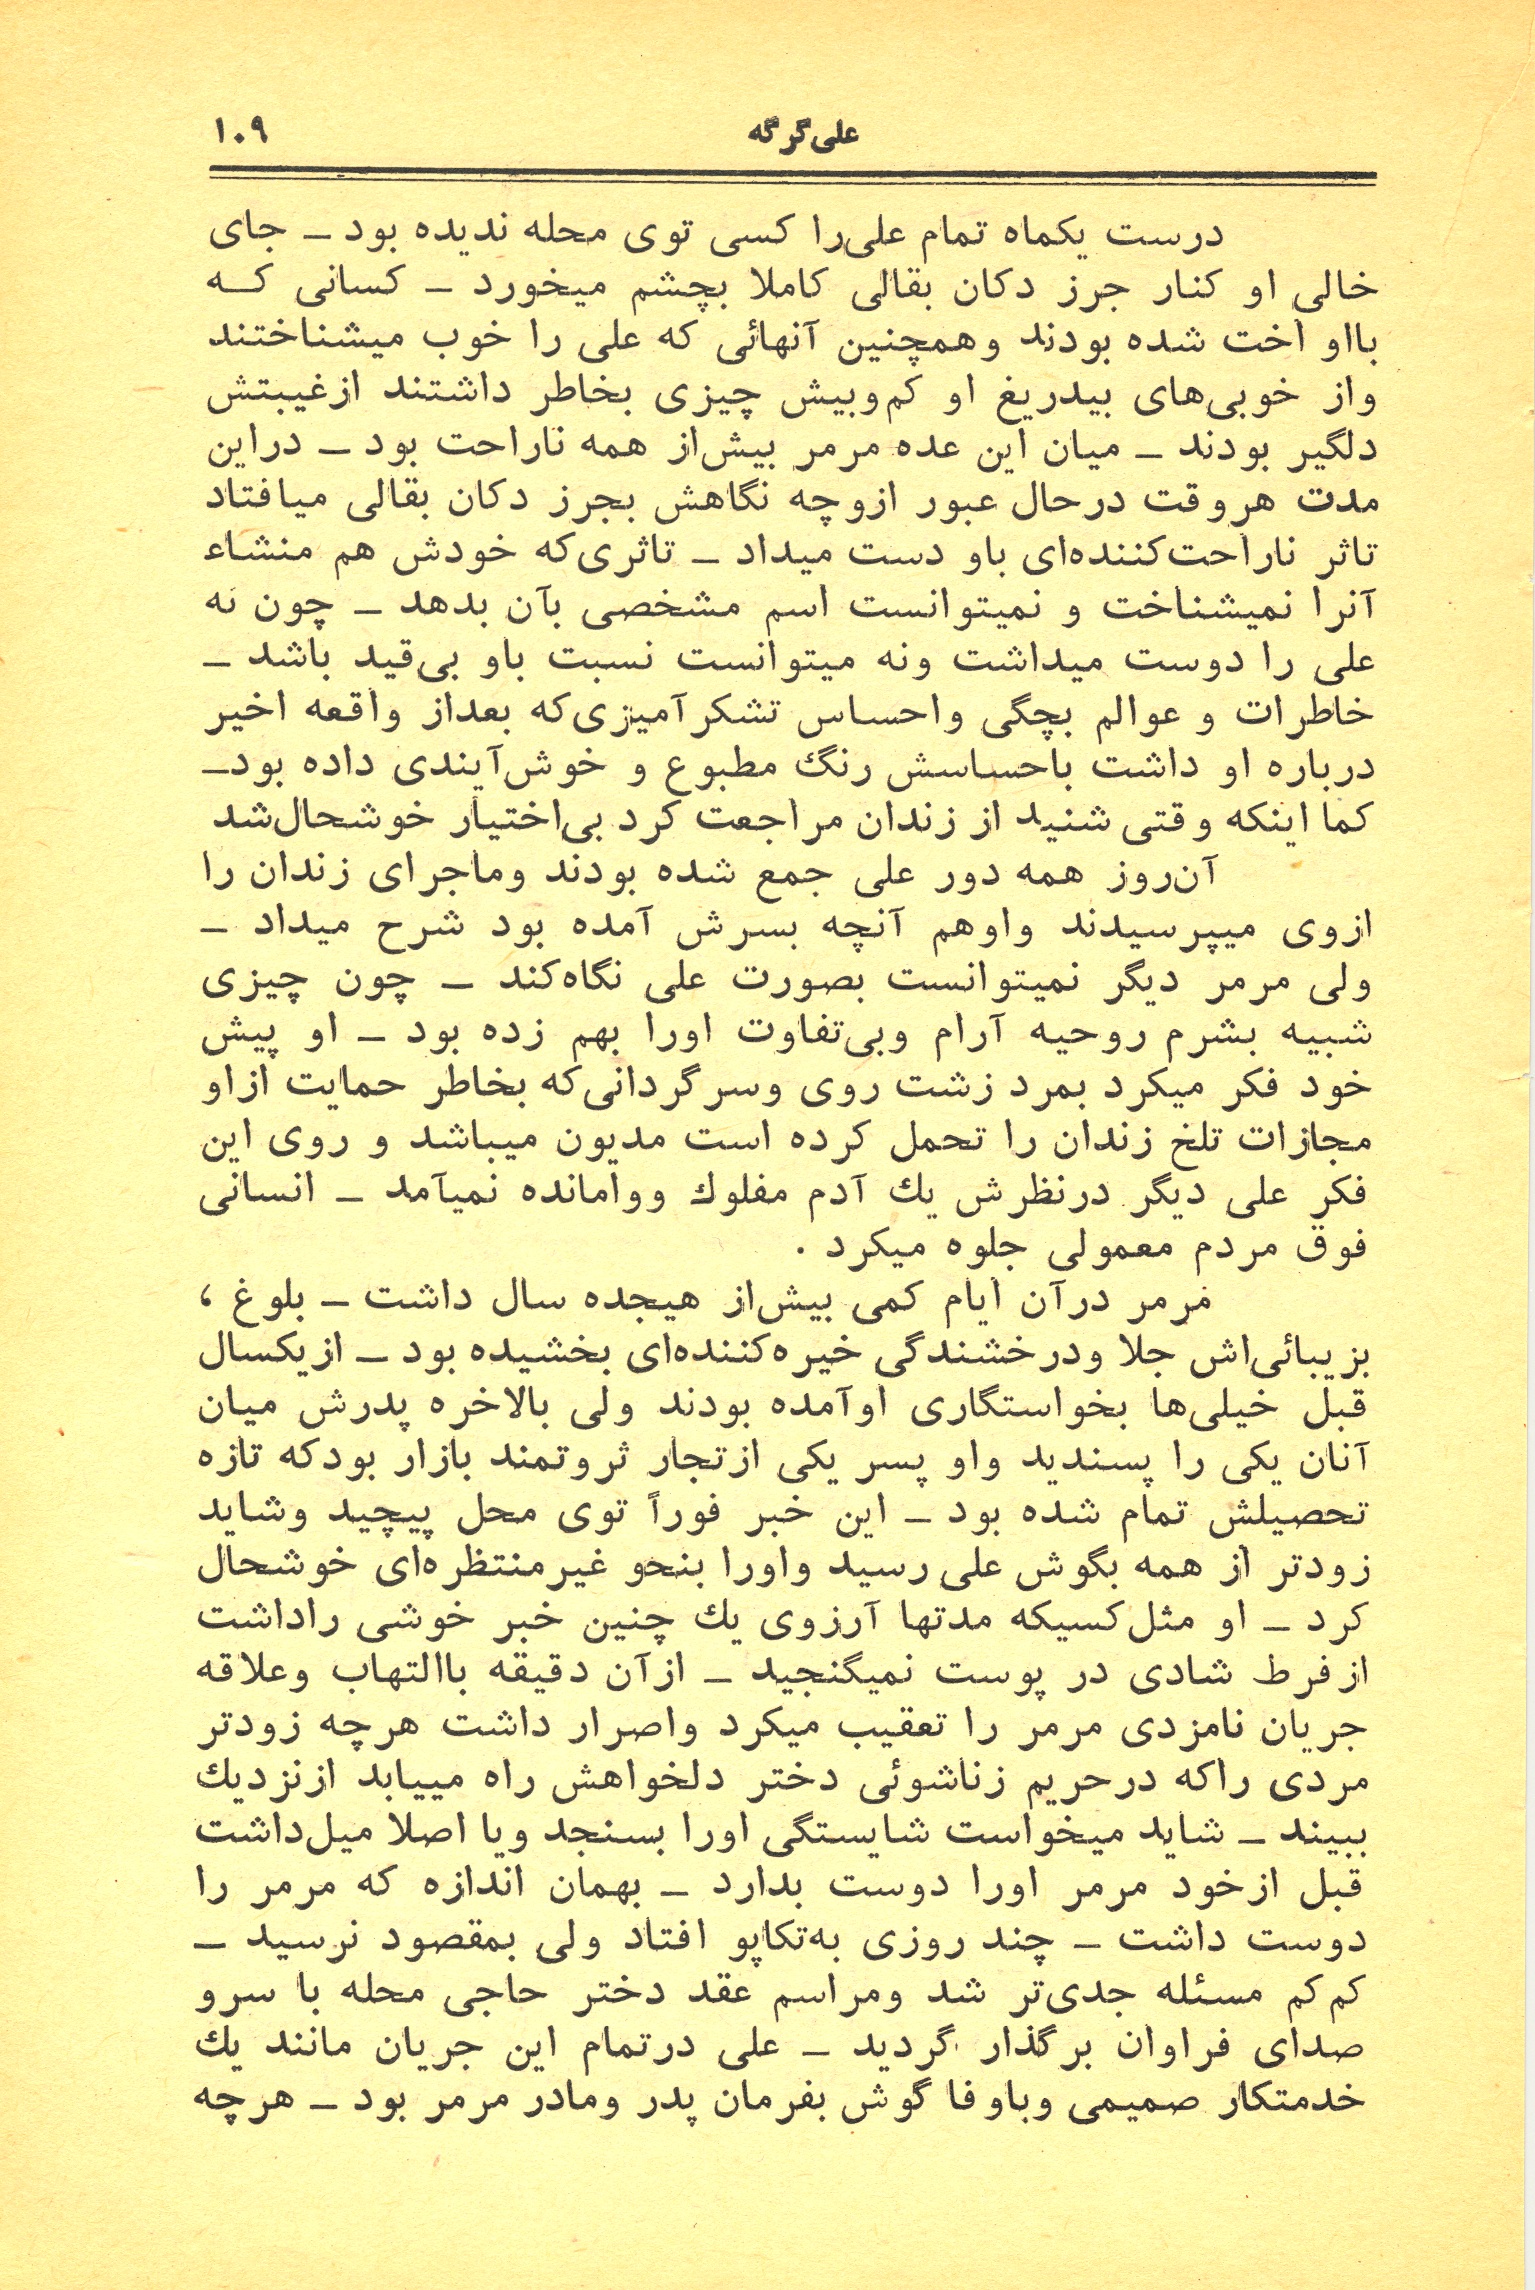 علی‌گرگه ۱۰۹
درست یکماه تمام علی‌را کسی توی محله ندیده بود ــ جای
خالی او کنار جرز دکان بقالی کاملا بچشم میخورد ــ کسانی که
بااو اخت شده بودند وهمچنین آنهائی که علی را خوب میشناختند
واز خوبی‌های بیدریغ او کم‌وبیش چیزی بخاطر داشتند ازغیبتش
دلگیر بودند ــ میان این عده مرمر بیش‌از همه ناراحت بود ــ دراین
مدت هروقت درحال عبور ازوچه نگاهش بجرز دکان بقالی میافتاد
تاثر ناراحت‌کننده‌ای باو دست میداد ــ تاثری‌که خودش هم منشاء
آنرا نمیشناخت و نمیتوانست اسم مشخصی بآن بدهد ــ چون نه
علی را دوست میداشت ونه میتوانست نسبت باو بی‌قید باشد ــ
خاطرات و عوالم بچگی واحساس تشکرآمیزی‌که بعداز واقعه اخیر
درباره او داشت باحساسش رنگ مطبوع و خوش‌آیندی داده بود ــ
کما اینکه وقتی شنید از زندان مراجعت کرد بی‌اختیار خوشحال‌شد
آن‌روز همه دور علی جمع شده بودند وماجرای زندان را
ازوی میپرسیدند واوهم آنچه بسرش آمده بود شرح میداد ــ
ولی مرمر دیگر نمیتوانست بصورت علی نگاه‌کند ــ چون چیزی
شبیه بشرم روحیه آرام وبی‌تفاوت اورا بهم زده بود ــ او پیش
خود فکر میکرد بمرد زشت روی وسرگردانی‌که بخاطر حمایت ازاو
مجازات تلخ زندان را تحمل کرده است مدیون میباشد و روی این
فکر علی دیگر درنظرش یك آدم مفلوك ووامانده نمیآمد ــ انسانی
فوق مردم معمولی جلوه میکرد .
مرمر درآن ایام کمی بیش‌از هیجده سال داشت ــ بلوغ ،
بزیبائی‌اش جلا ودرخشندگی خیره‌کننده‌ای بخشیده بود ــ ازیکسال
قبل خیلی‌ها بخواستگاری اوآمده بودند ولی بالاخره پدرش میان
آنان یکی را پسندید واو پسر یکی ازتجار ثروتمند بازار بودکه تازه
تحصیلش تمام شده بود ــ این خبر فوراً توی محل پیچید وشاید
زودتر از همه بگوش علی رسید واورا بنحو غیرمنتظره‌ای خوشحال
کرد ــ او مثل‌کسیکه مدتها آرزوی یك چنین خبر خوشی راداشت
ازفرط شادی در پوست نمیگنجید ــ ازآن دقیقه باالتهاب وعلاقه
جریان نامزدی مرمر را تعقیب میکرد واصرار داشت هرچه زودتر
مردی راکه درحریم زناشوئی دختر دلخواهش راه مییابد ازنزدیك
ببیند ــ شاید میخواست شایستگی اورا بسنجد ویا اصلا میل‌داشت
قبل ازخود مرمر اورا دوست بدارد ــ بهمان اندازه که مرمر را
دوست داشت ــ چند روزی به‌تکاپو افتاد ولی بمقصود نرسید ــ
کم‌کم مسئله جدی‌تر شد ومراسم عقد دختر حاجی محله با سرو
صدای فراوان برگذار گردید ــ علی درتمام این جریان مانند یك
خدمتکار صمیمی وباوفا گوش بفرمان پدر ومادر مرمر بود ــ هرچه